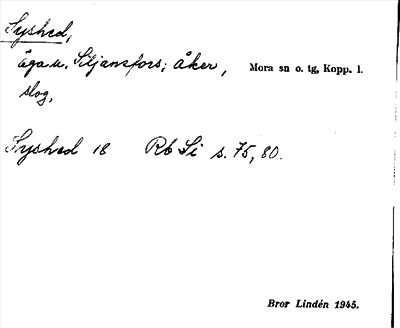 Syshed,
äga u. Siljansfors; åker, Mora sn o. tg, Kopp. l.
slog,
Syshed 18 Rb Si s. 75, 80.
Bror Lindén 1945.